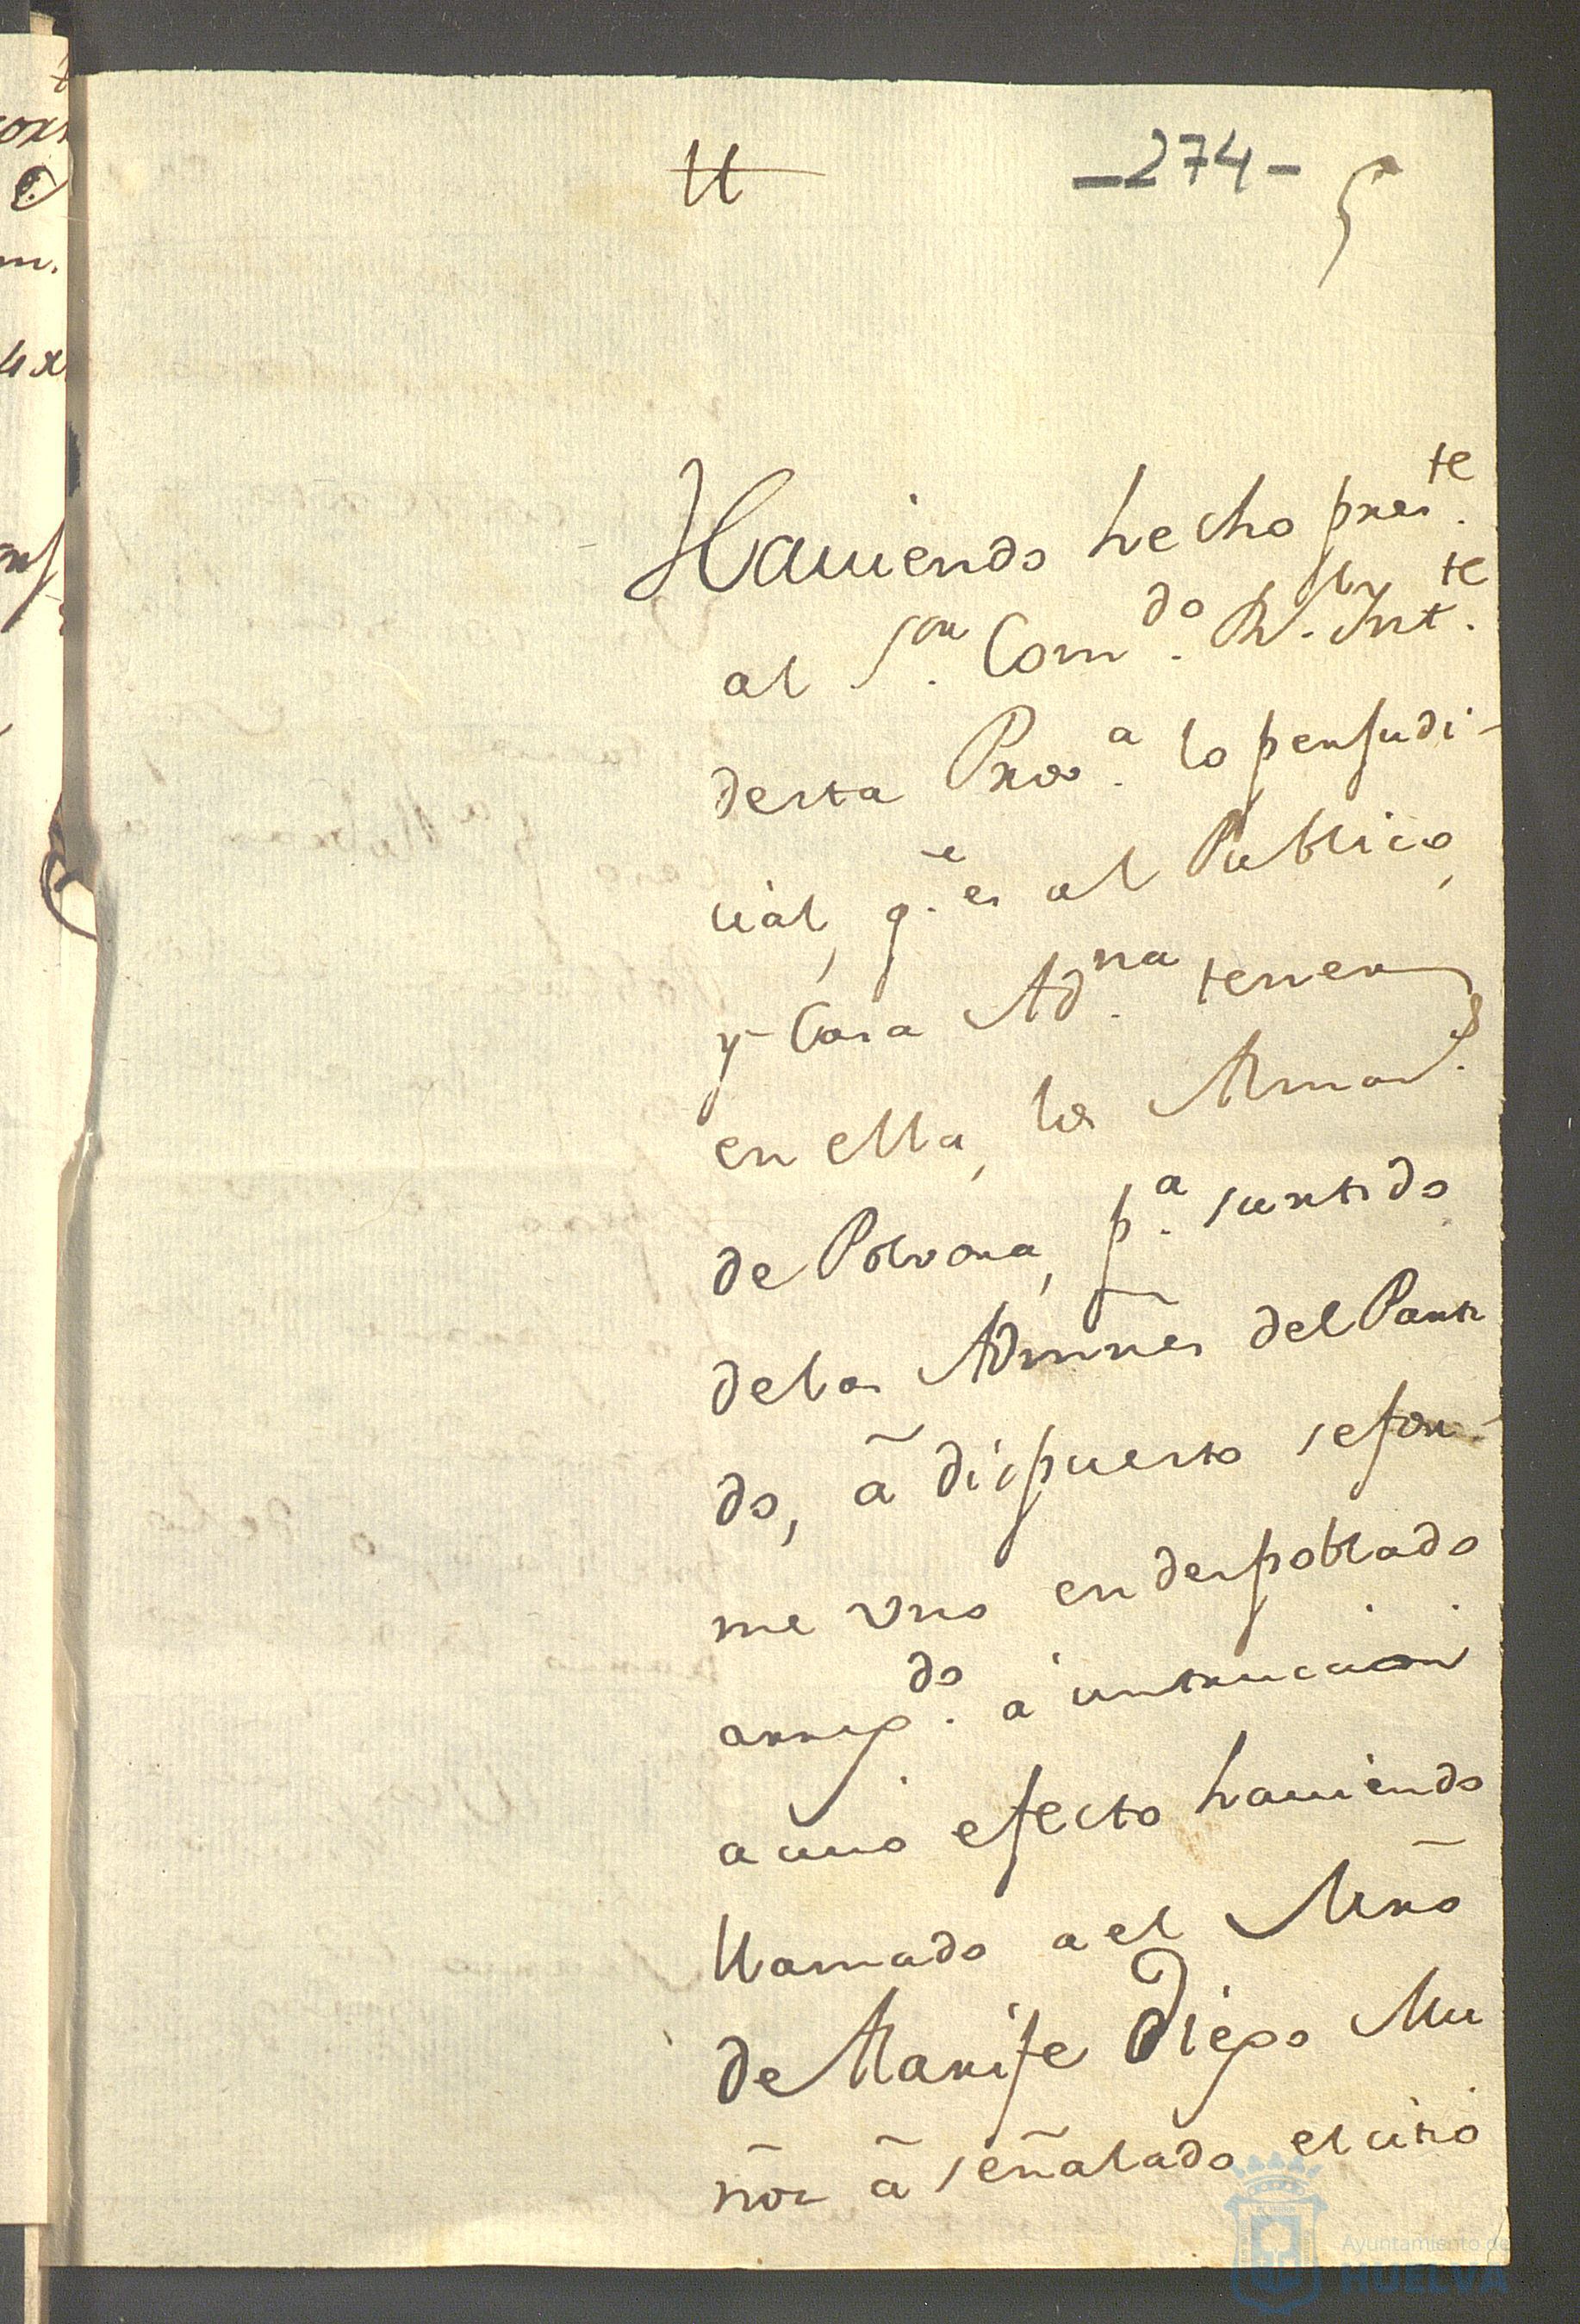 -274-
Hauiendo hecho pres.te
al S.or Com.do R.l Int.te
desta Prov.a lo perjudi-
cial, q.e es al Publico,
y Casa Ad.na tener
en ella, los Almaz.s
de Polvora, p.a surtido
delas Admnes del Parti
do, ā dispuesto sefor-
me vno en despoblado
arreg.do á instruccion
a cuio efecto hauiendo
llamado a el Mr̃o
de Alarife Diego Mu
ñoz ā señalado el citio
Ayuntamiento de
HUELVA